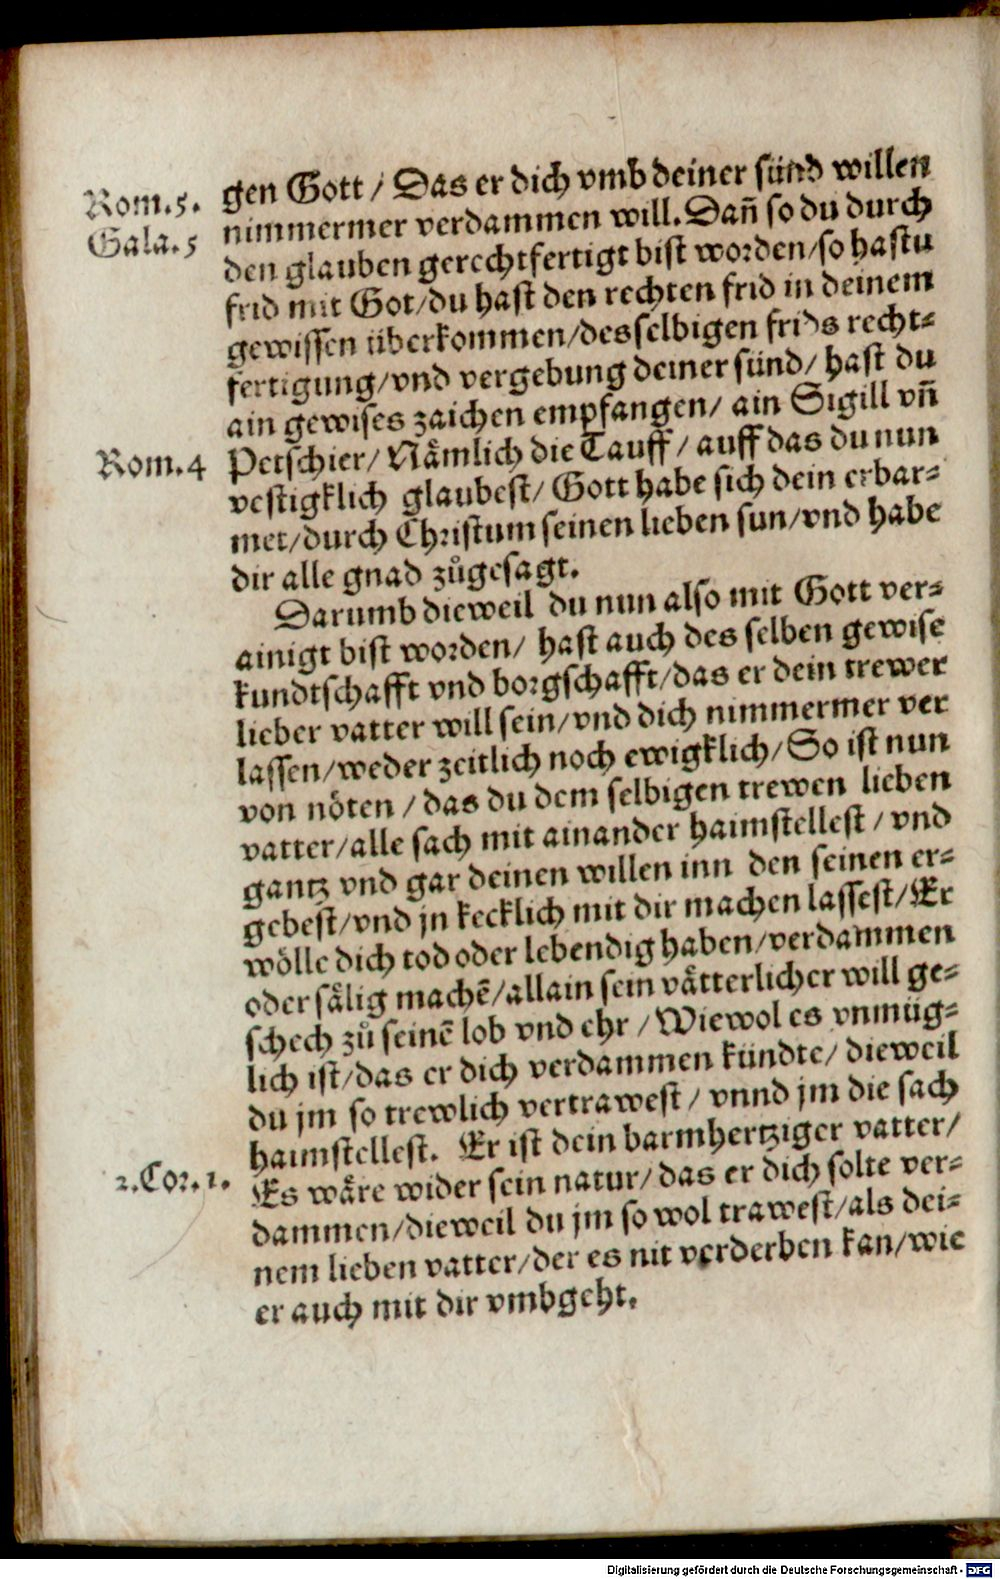 Rom.5.
Gala.5
gen Gott / Das er dich vmb deiner sünd willen
nimmermer verdammen will. Dañ so du durch
den glauben gerechtfertigt bist worden/so hastu
frid mit Got/du hast den rechten frid in deinem
gewissen überkommen/desselbigen frids recht-
fertigung/vnd vergebung deiner sünd/ hast du
ain gewises zaichen empfangen/ ain Sigill vñ
Rom.4
Petschier/ Nåmlich die Tauff / auff das du nun
vestigklich glaubest/ Gott habe sich dein erbar-
met/durch Christum seinen lieben sun/vnd habe
dir alle gnad zůgesagt.
Darumb dieweil du nun also mit Gott ver-
ainigt bist worden/ hast auch des selben gewise
kundtschafft vnd borgschafft/das er dein trewer
lieber vatter will sein/vnd dich nimmermer ver
lassen/weder zeitlich noch ewigklich/So ist nun
von nöten / das du dem selbigen trewen lieben
vatter/alle sach mit ainander haimstellest / vnd
gantz vnd gar deinen willen inn den seinen er-
gebest/vnd jn kecklich mit dir machen lassest/Er
wölle dich tod oder lebendig haben/verdammen
oder sålig machē/allain sein våtterlicher will ge-
schech zů seinē lob vnd ehr / Wiewol es vnmüg-
lich ist/das er dich verdammen kündte/ dieweil
du jm so trewlich vertrawest / vnnd jm die sach
haimstellest. Er ist dein barmhertziger vatter/
2.Cor.1.
Es wåre wider sein natur/das er dich solte ver-
dammen/dieweil du jm so wol trawest/als dei-
nem lieben vatter/der es nit verderben kan/wie
er auch mit dir vmbgeht.
Digitalisierung gefördert durch die Deutsche Forschungsgemeinschaft - DFG